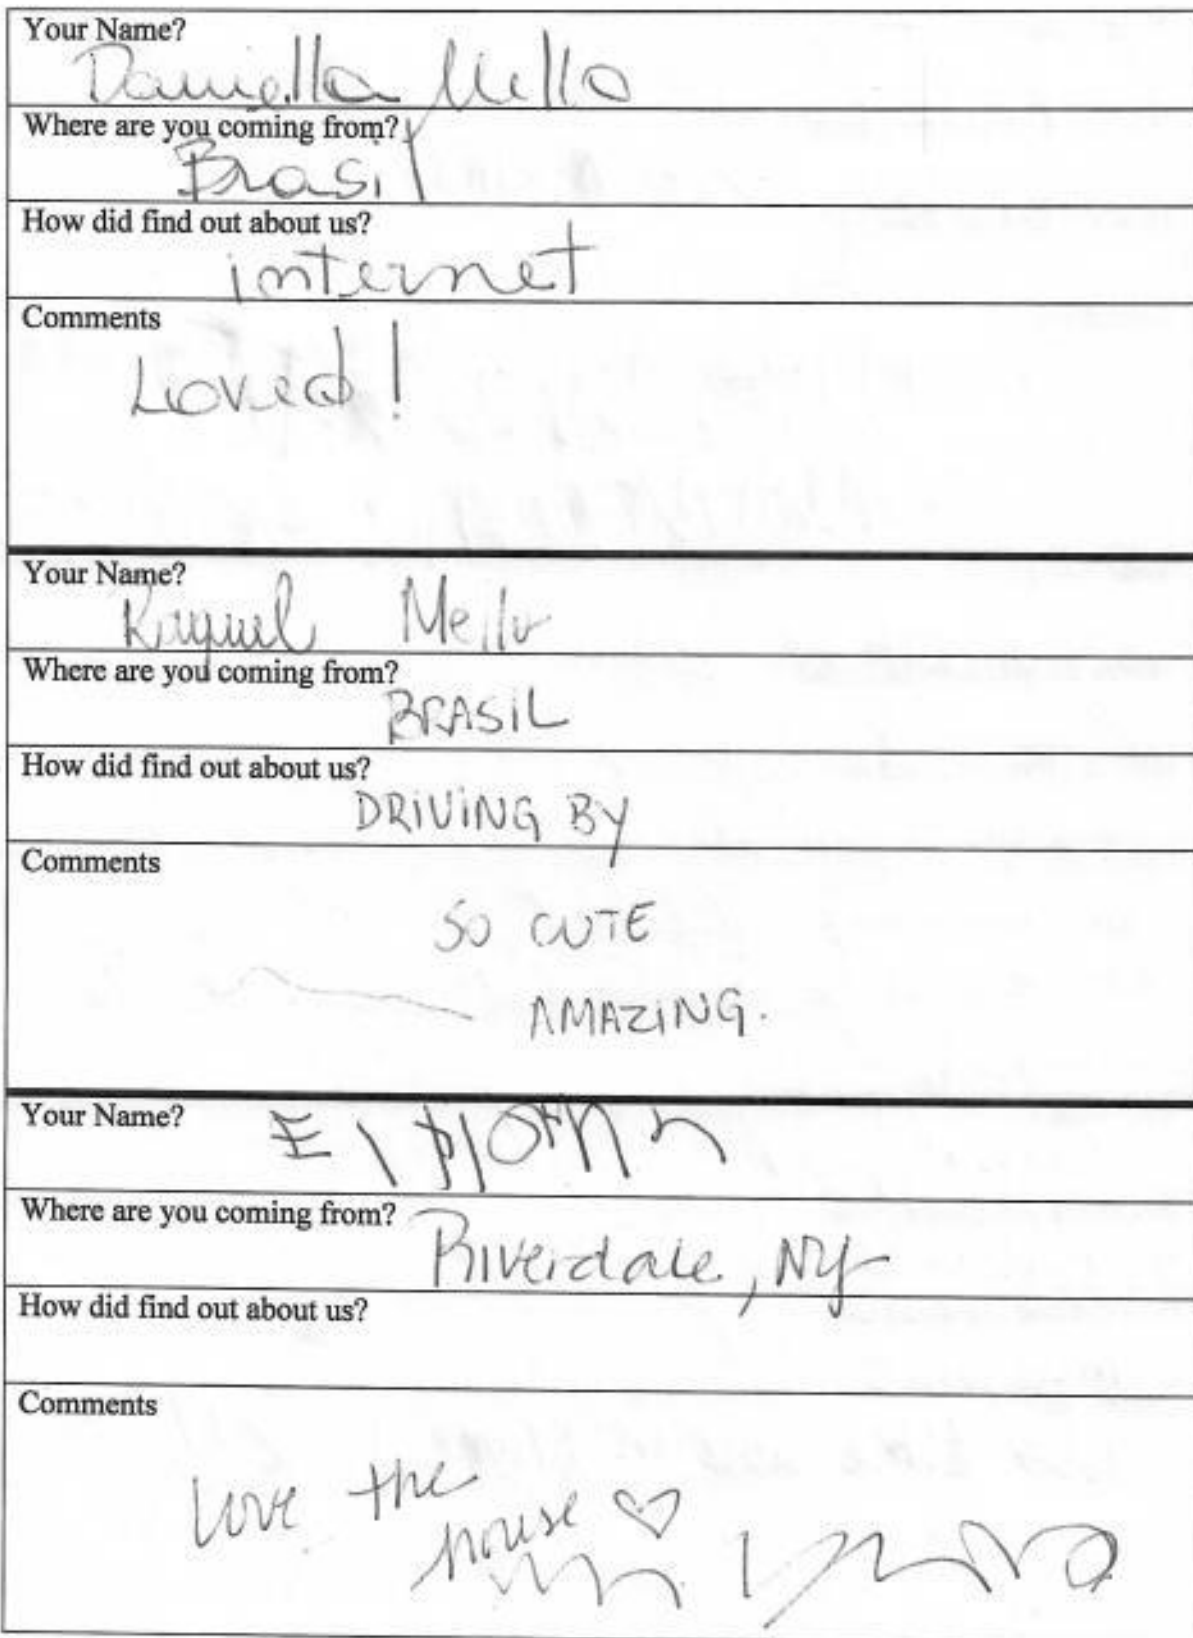 Your Name?
Daniella Mello
Where are you coming from?
Brasil
How did find out about us?
internet
Comments
Loved!
Your Name?
Raquel Mello
Where are you coming from?
BRASIL
How did find out about us?
DRIVING BY
Comments
SO CUTE
AMAZING.
Your Name?
Where are you coming from?
Riverdale, NY
How did find out about us?
Comments
Love the
house ♡